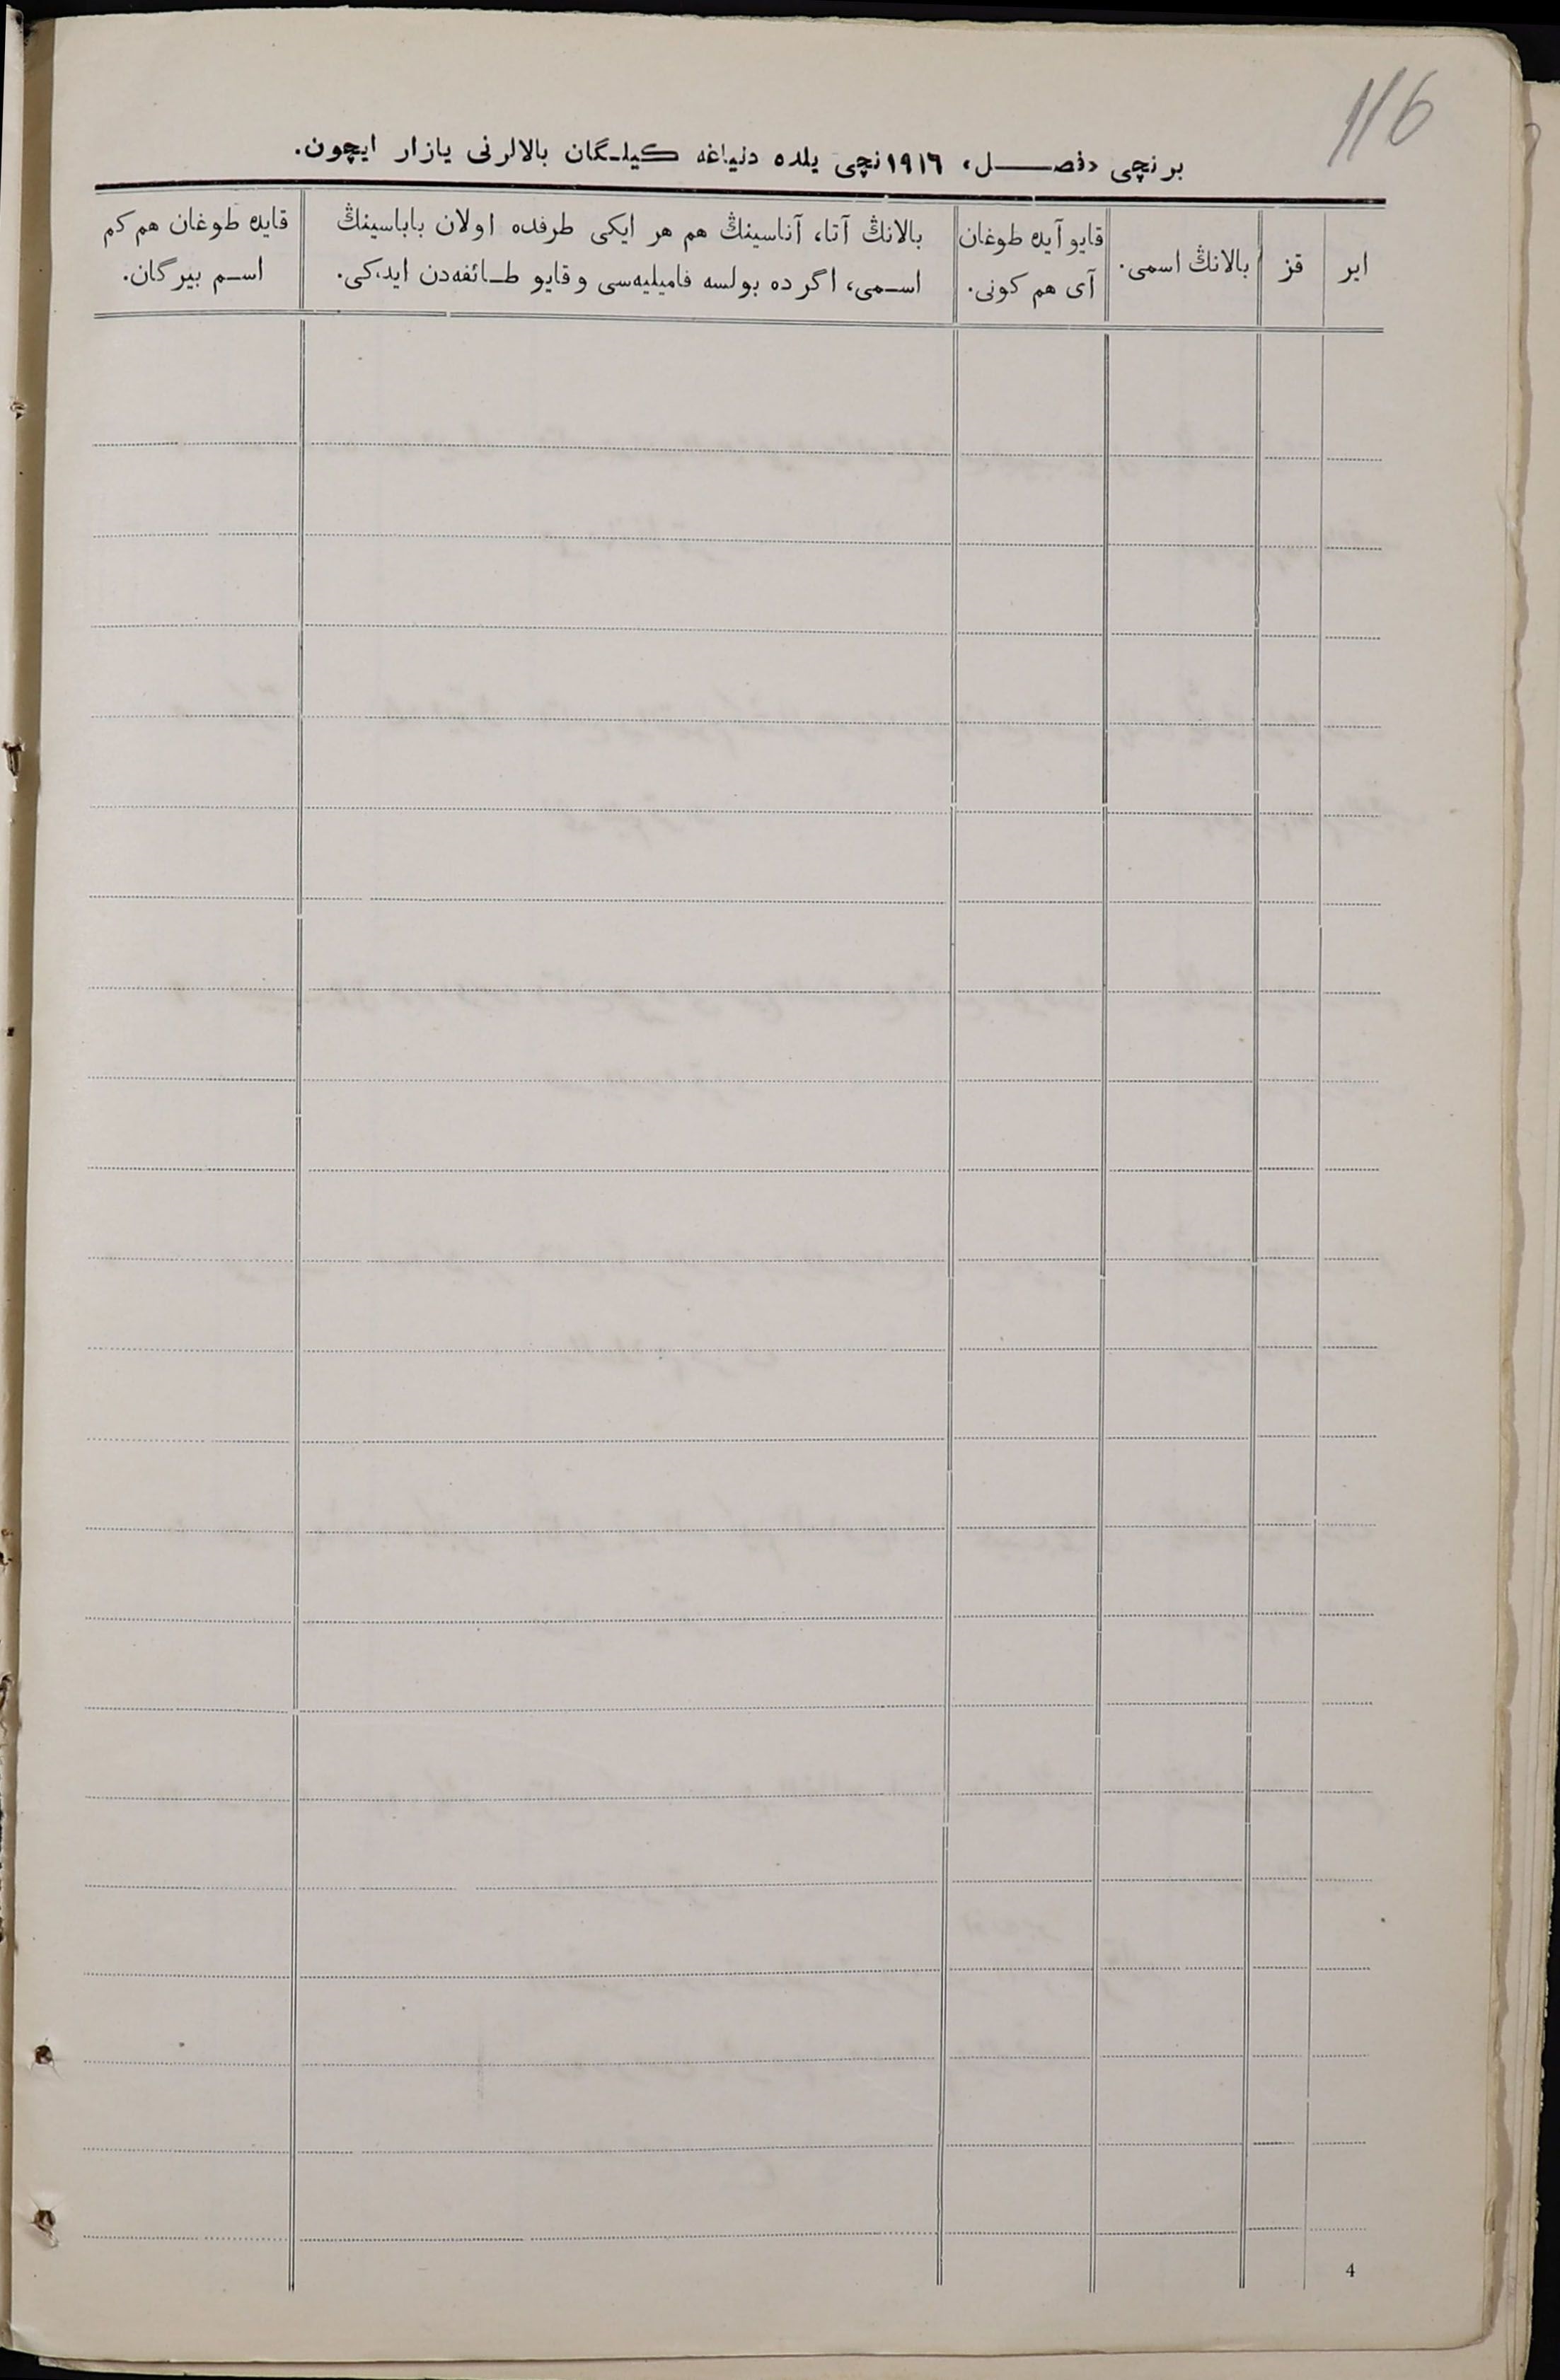 116
برنچی «فصل» ١٩١٦نچی یلده دنیاغه کیلگان بالالرنی یازار ایچون.
ایر
قز
بالانڭ اسمی.
قایو آیده طوغان
آی هم کونی.
بالانڭ آتا، آناسینڭ هم هر ایکی طرفده اولان باباسینڭ
اسمی، اگر ده بولسه فامیلیه‌سی و قایو طائفه‌دن ایدکی.
قایده طوغان هم کم
اسم بیرگان.
4